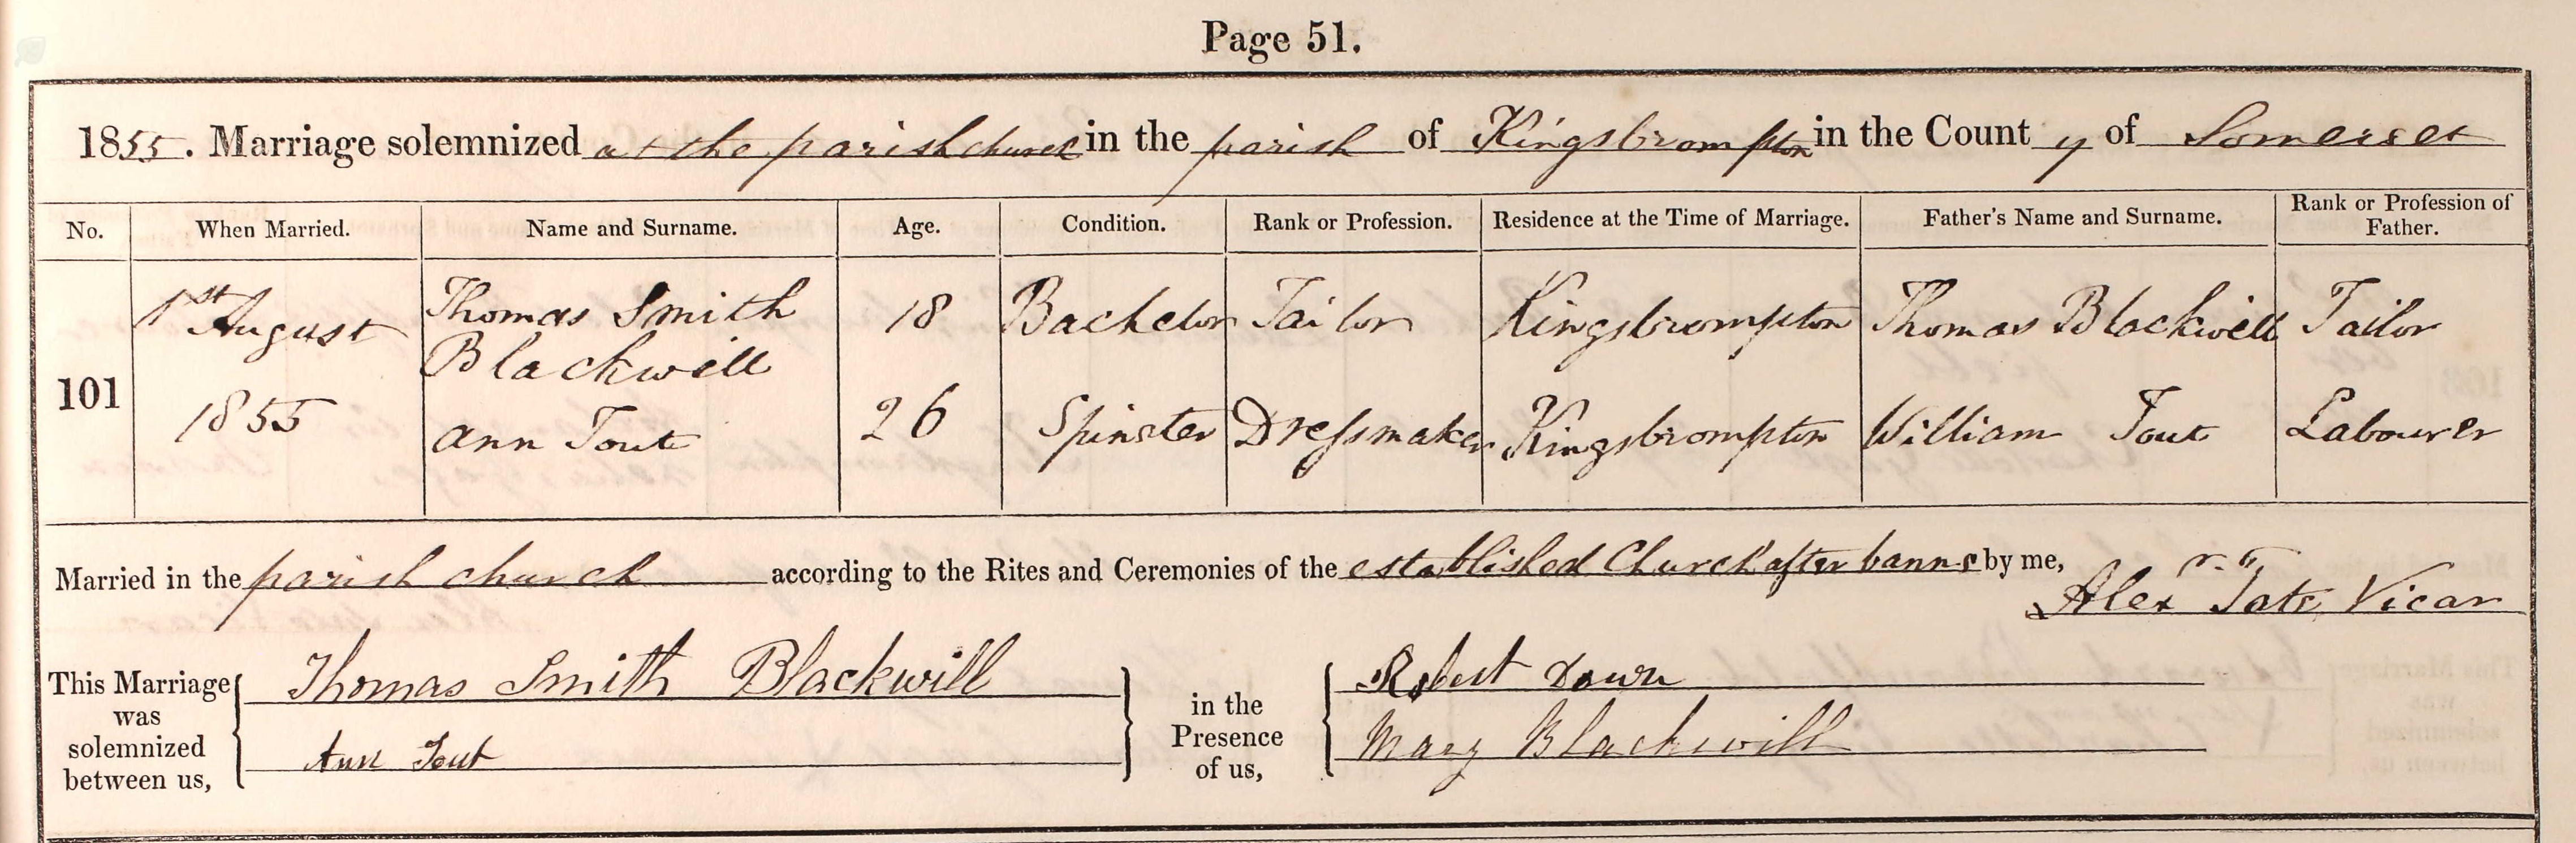 Page 51.
1855. Marriage solemnized at the parish church in the parish of Kingsbrompton in the County of Somerset
No. When Married. Name and Surname. Age. Condition. Rank or Profession. Residence at the Time of Marriage. Father's Name and Surname. Rank or Profession of Father.
101
1st August 1855
Thomas Smith Blackwill 18 Bachelor Tailor Kingsbrompton Thomas Blackwill Tailor
Ann Tout 26 Spinster Dressmaker Kingsbrompton William Tout Labourer
Married in the parish church according to the Rites and Ceremonies of the established Church after banns by me,
Alex Tate, Vicar
This Marriage was solemnized between us,
Thomas Smith Blackwill
Ann Tout
in the Presence of us,
Robert Down
Mary Blackwill